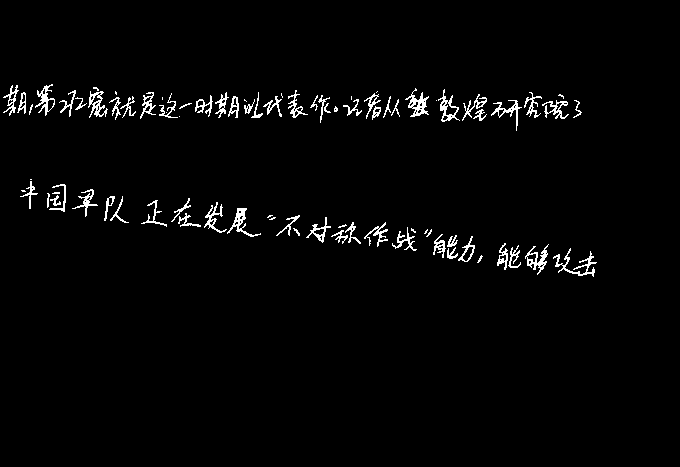 期,第272窟就是这一时期的代表作。记者从敦煌研究院了
中国军队正在发展“不对称作战”能力,能够攻击